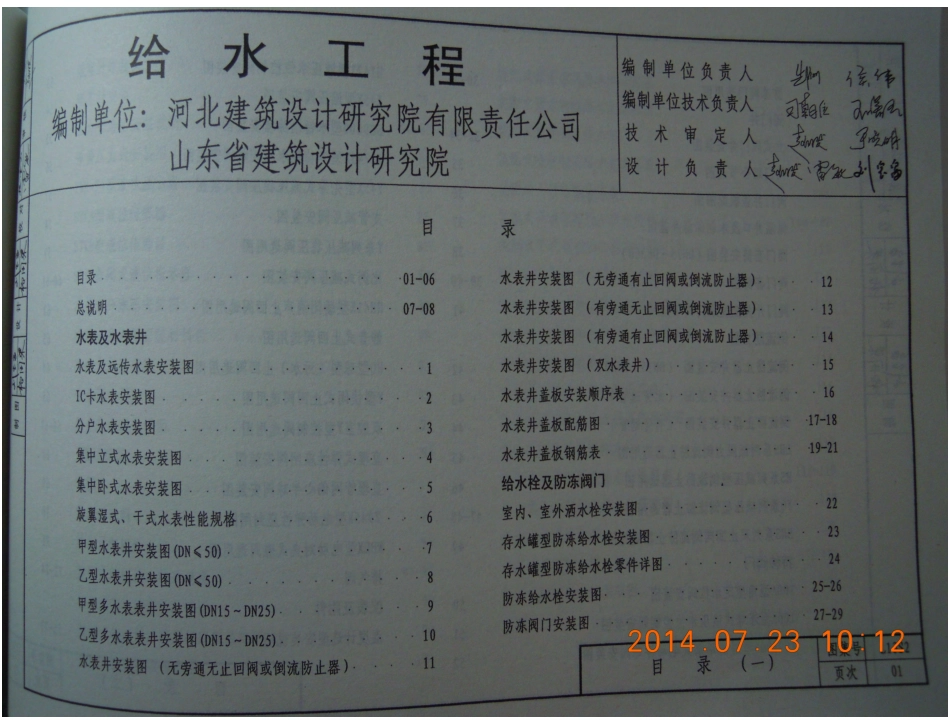 给水工程
编制单位：河北建筑设计研究院有限责任公司
山东省建筑设计研究院
编制单位负责人
编制单位技术负责人
技术审定人
设计负责人
目录
目录 01-06
总说明 07-08
水表及水表井
水表及远传水表安装图 1
IC卡水表安装图 2
分户水表安装图 3
集中立式水表安装图 4
集中卧式水表安装图 5
旋翼湿式、干式水表性能规格 6
甲型水表井安装图(DN≤50) 7
乙型水表井安装图(DN≤50) 8
甲型多水表表井安装图(DN15～DN25) 9
乙型多水表表井安装图(DN15～DN25) 10
水表井安装图（无旁通无止回阀或倒流防止器） 11
水表井安装图（无旁通有止回阀或倒流防止器） 12
水表井安装图（有旁通无止回阀或倒流防止器） 13
水表井安装图（有旁通有止回阀或倒流防止器） 14
水表井安装图（双水表井） 15
水表井盖板安装顺序表 16
水表井盖板配筋图 17-18
水表井盖板钢筋表 19-21
给水栓及防冻阀门
室内、室外洒水栓安装图 22
存水罐型防冻给水栓安装图 23
存水罐型防冻给水栓零件详图 24
防冻给水栓安装图 25-26
防冻阀门安装图 27-29
2014.07.23 10:12
目录（一）
页次 01